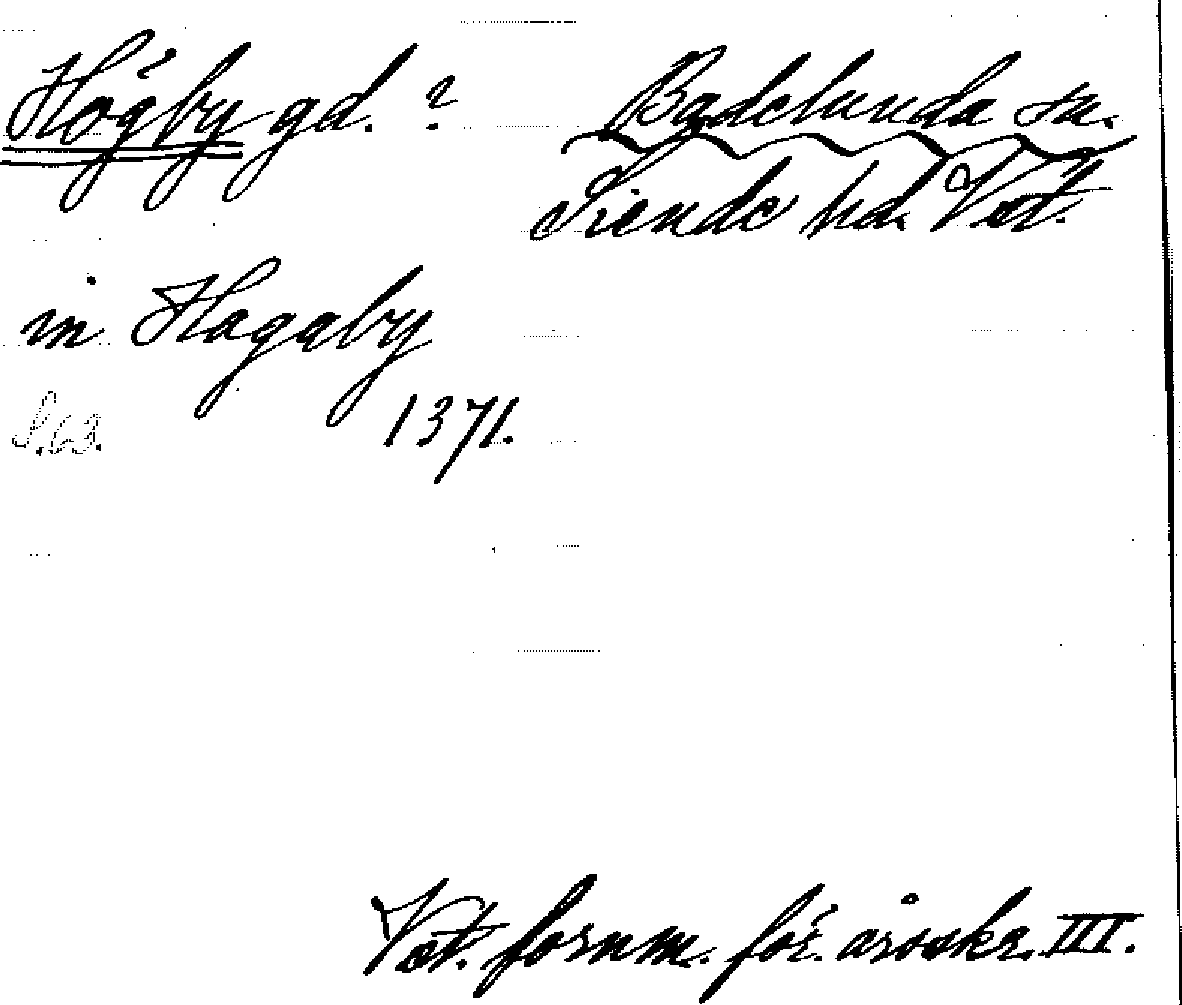 Högby gd. ?
Badelunda sn.
Siende hd. Vst.
in Hagaby
S. 63. 1371.
Vst. fornm. för. årsskr. III.